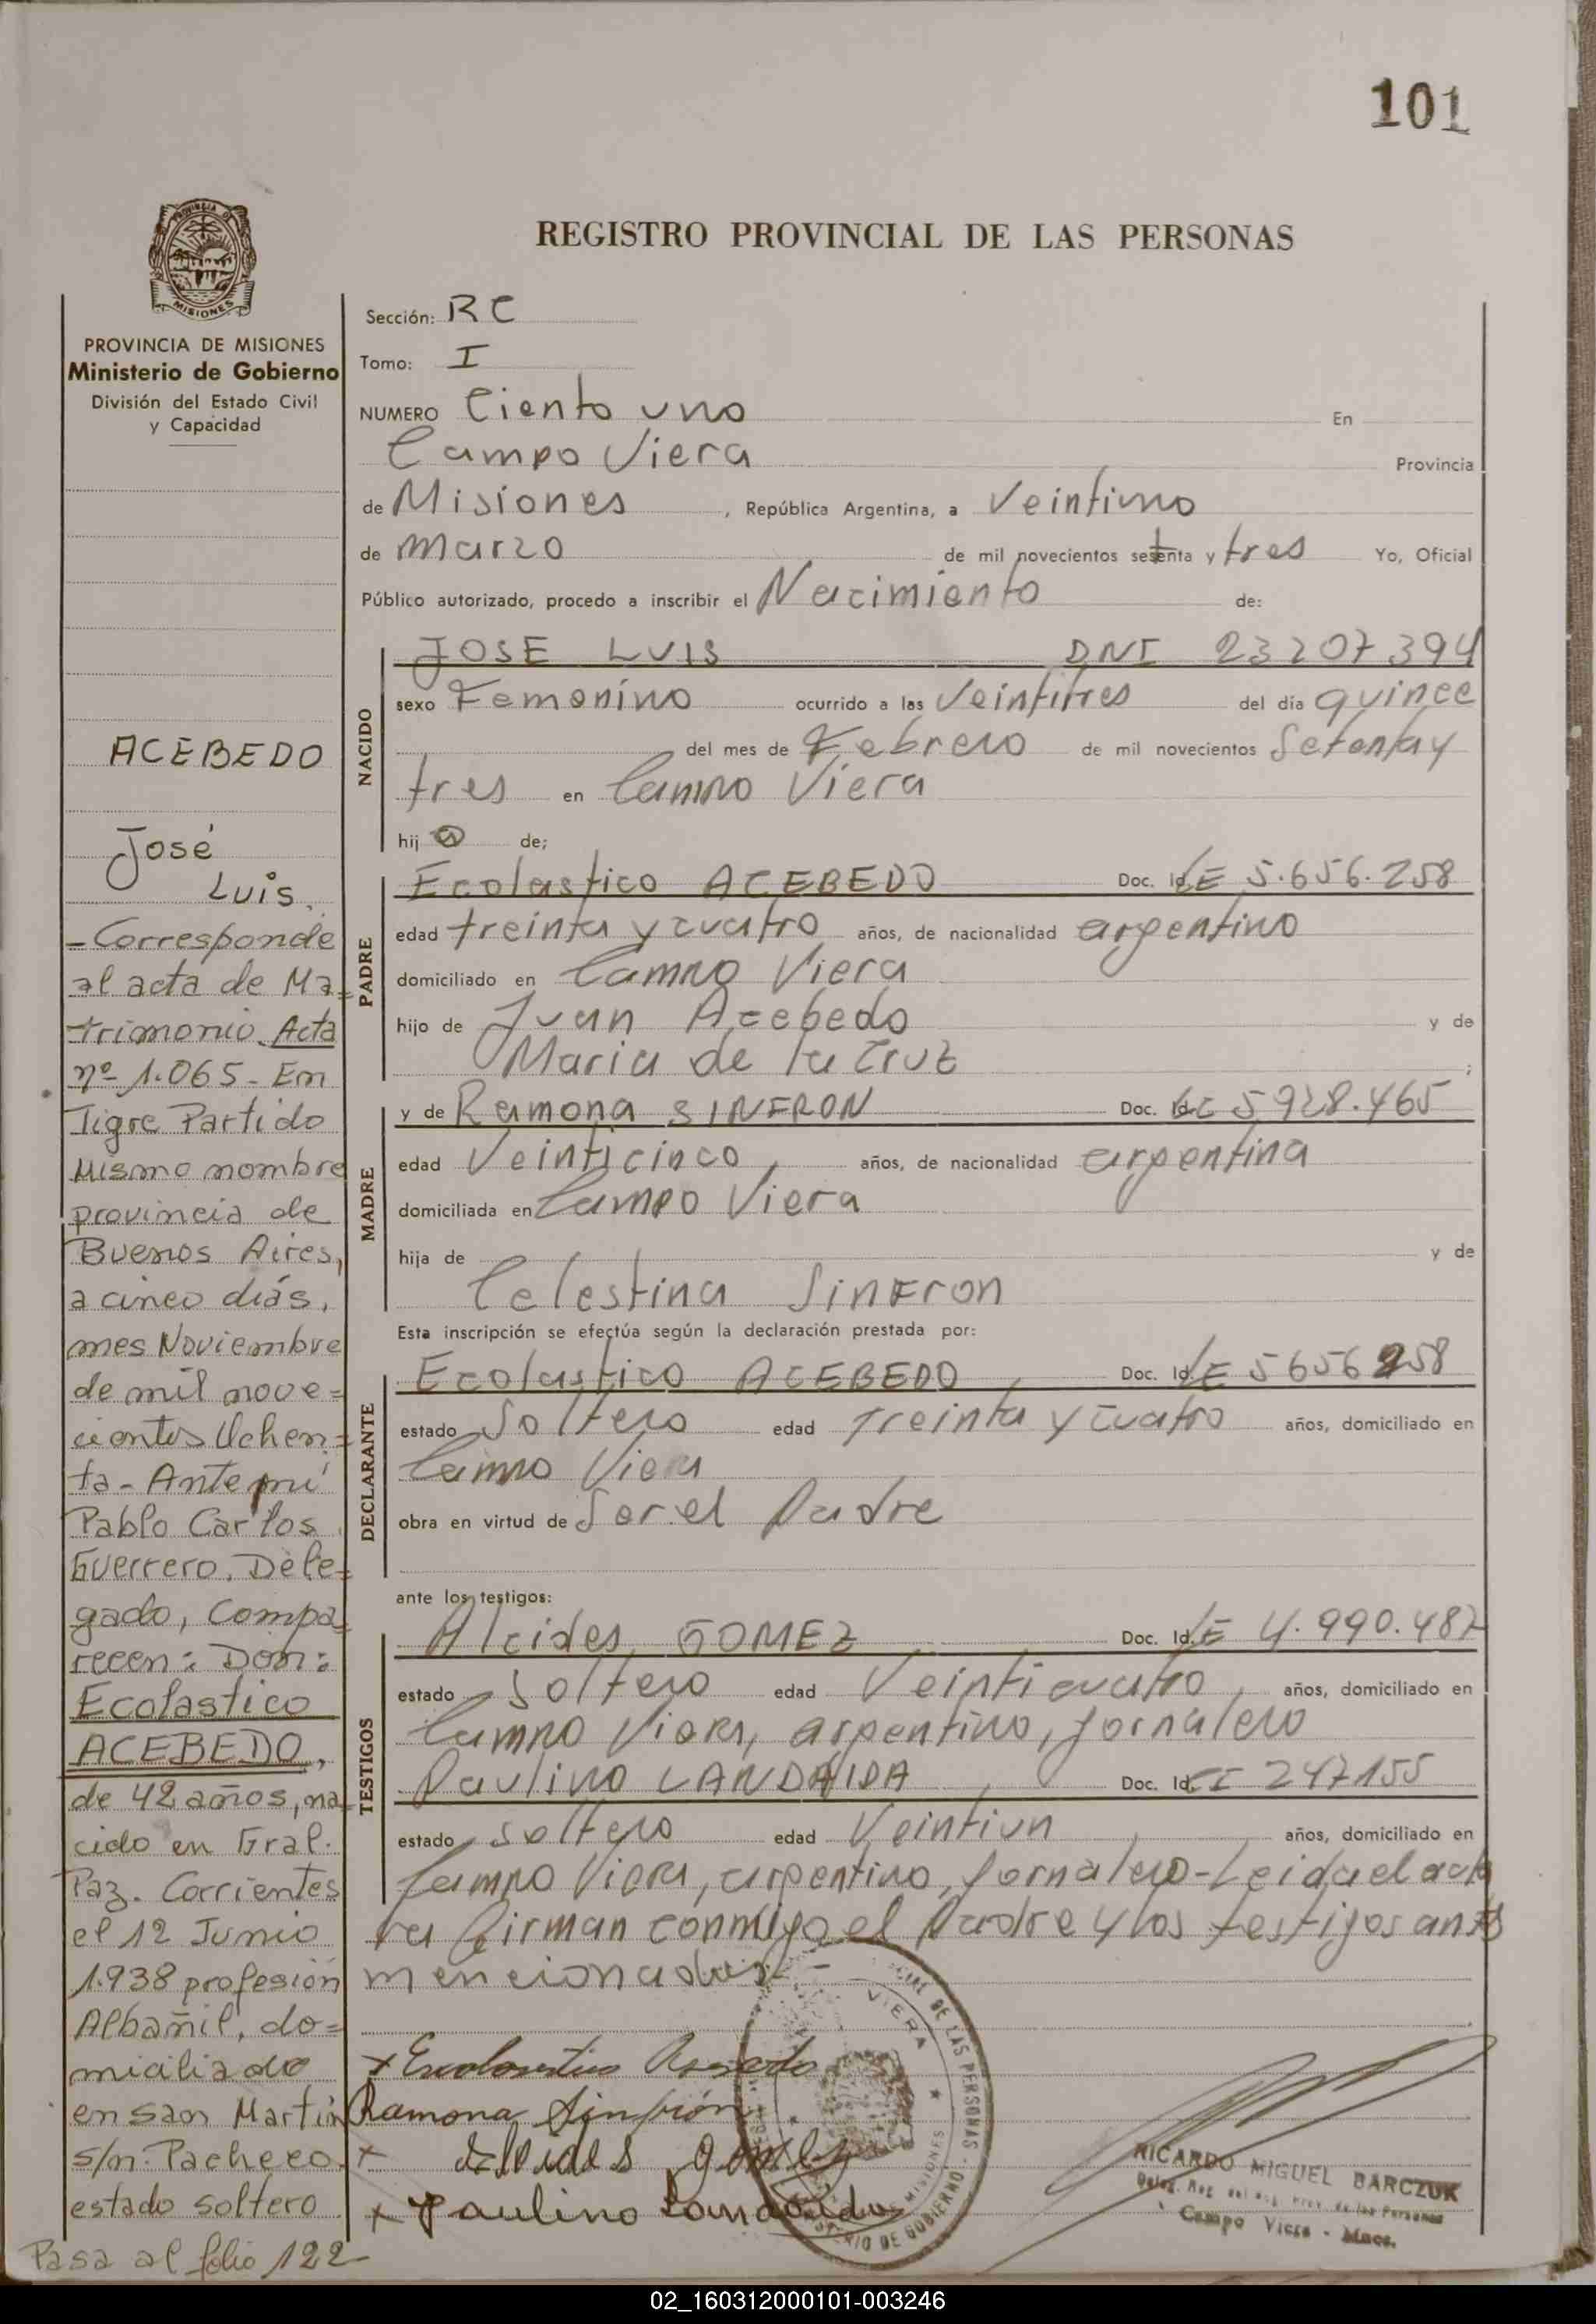 101
REGISTRO PROVINCIAL DE LAS PERSONAS
PROVINCIA DE MISIONES
Ministerio de Gobierno
División del Estado Civil
y Capacidad
ACEBEDO
José
Luis.
- Corresponde
al acta de Ma=
trimonio. Acta
nº 1.065 - En
Tigre Partido
Mismo nombre
provincia de
Buenos Aires,
a cinco diás,
mes Noviembre
de mil nove=
cientos Ochen=
ta - Ante mi
Pablo Carlos
Guerrero. Dele=
gado, Compa=
recen: Don:
Ecolastico
ACEBEDO,
de 42 años, na=
cido en Gral.
Paz. Corrientes
el 12 Junio
1.938 profesión
Albañil, do=
miciliado
en San Martín
s/n. Pacheco.
estado soltero
Pasa al folio 122
Sección: RC
Tomo: I
NUMERO Ciento uno En
Campo Viera Provincia
de Misiones, República Argentina, a Veintiuno
de marzo de mil novecientos setenta y tres Yo, Oficial
Público autorizado, procedo a inscribir el Nacimiento de:
NACIDO
JOSE LUIS DNI 23207394
sexo Femenino ocurrido a las Veintitres del día quince
del mes de Febrero de mil novecientos Setenta y
tres en Campo Viera
hij a de;
PADRE
Ecolastico ACEBEDO Doc. Id. LE 5.656.258
edad treinta y cuatro años, de nacionalidad argentino
domiciliado en Campo Viera
hijo de Juan Acebedo y de
Maria de la Cruz ;
MADRE
y de Ramona SINFRON Doc. Id. LC 5928.465
edad Veinticinco, años, de nacionalidad argentina
domiciliada en Campo Viera
hija de y de
Celestina Sinfron
Esta inscripción se efectúa según la declaración prestada por:
DECLARANTE
Ecolastico ACEBEDO, Doc. Id. LE 5656258
estado Soltero edad Treinta y cuatro años, domiciliado en
Campo Viera
obra en virtud de Ser el Padre
ante los testigos:
TESTIGOS
Alcides GOMEZ, Doc. Id. LE 4.990.487
estado Soltero edad Veinticuatro, años, domiciliado en
Campo Viera, argentino, jornalero
Paulino LANDAIDA, Doc. Id. CI 247155
estado soltero edad Veintiun años, domiciliado en
Campo Viera, argentino, jornalero - Leida el acta
la firman conmigo el Padre y los testigos antes
mencionados. -
x Escolastico Acevedo
Ramona Sinfrón
x Alcides Gomez
x Paulino Landaida
VIERA
DE LAS PERSONAS
MISIONES
DE GOBIERNO
RICARDO MIGUEL BARCZUK
Deleg. Reg. Prov. de las Personas
Campo Viera - Mnes.
02_160312000101-003246